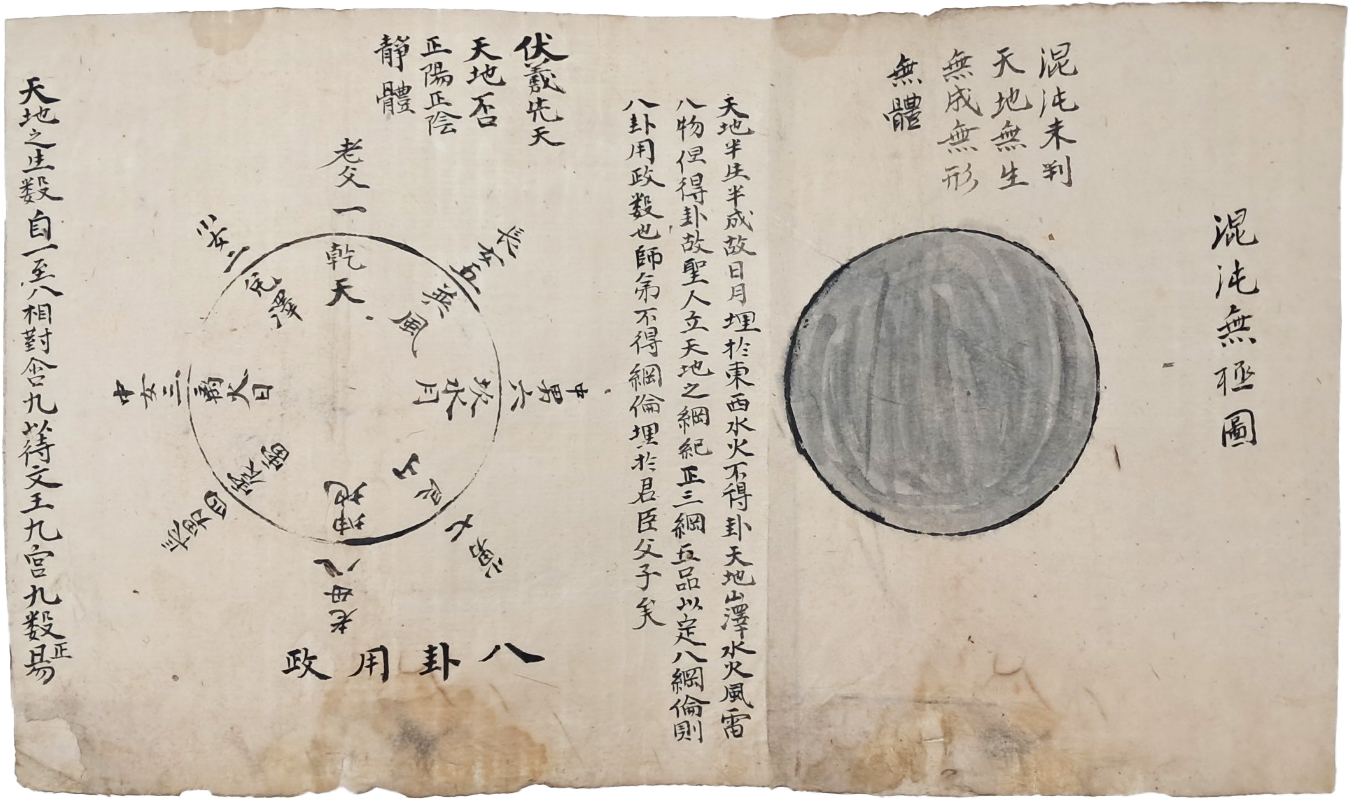 混沌無極圖
混沌未判
天地無生
無成無形
無體
天地半生半成故日月埋於東西水火不得卦天地山澤水火風雷
八物但得卦故聖人立天地之綱紀正三綱五品以定八綱倫則
八卦用政数也師弟不得綱倫埋於君臣父子矣
伏羲先天
天地否
正陽正陰
靜體
老父一
乾天
長女五
巽風
中男六
坎水月
少男七
艮山
老母八
坤地
長男四
震雷
中女三
离火日
少女二
兌澤
八卦用政
天地之生数自一至八相對含九以待文王九宮九数正易